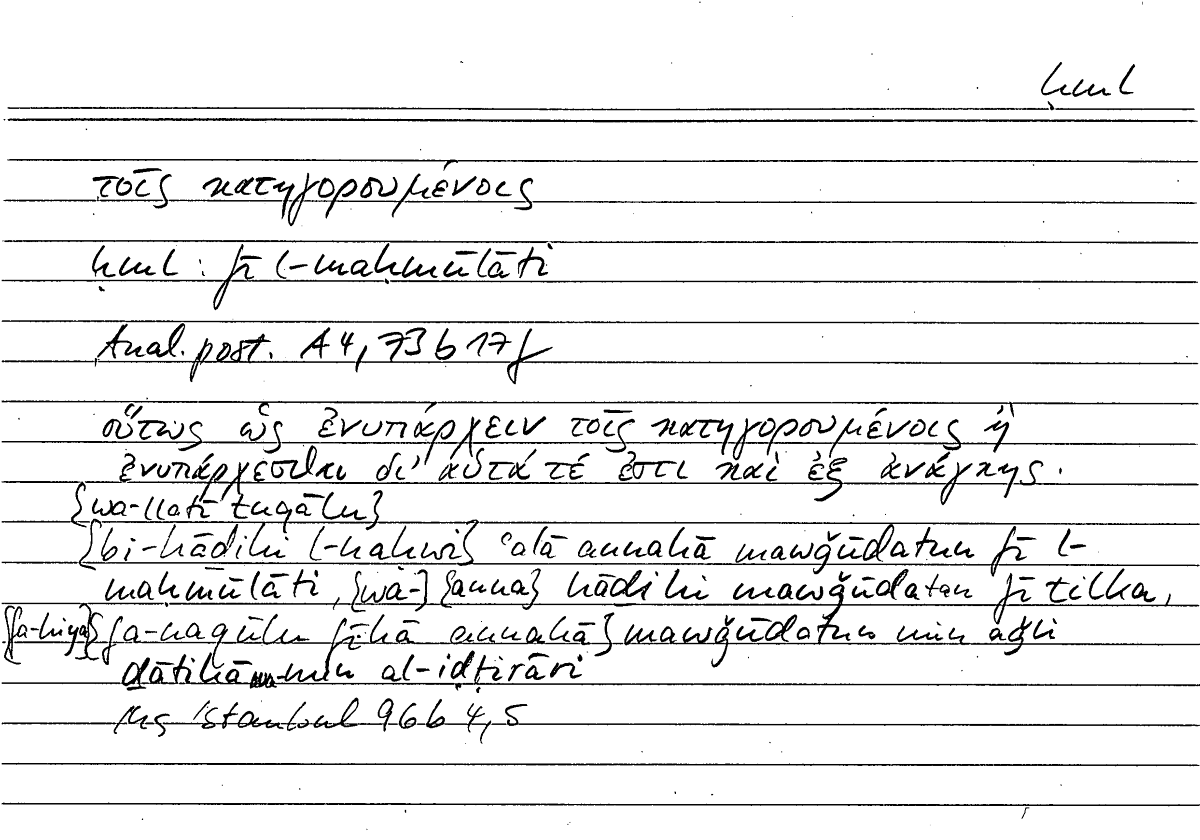 ḥml
τοῖς κατηγορουμένοις
ḥml : fī l-maḥmūlāti
Anal. post. A 4, 73 b 17 f
οὕτως ὡς ἐνυπάρχειν τοῖς κατηγορουμένοις ἢ
ἐνυπάρχεσθαι δι' αὑτά τέ ἐστι καὶ ἐξ ἀνάγκης.
{wa-llatī tuqālu}
{bi-hāḏihi l-naḥwi} ʿalā annahā mawǧūdatun fī l-
maḥmūlāti, {wa-} {anna} hāḏihi mawǧūdatan fī tilka,
{fa-hiya} {fa-naqūlu fīhā annahā} mawǧūdatun min aǧli
ḏātihā wa-min al-iḍṭirāri
Hs Istanbul 96b 4, 5